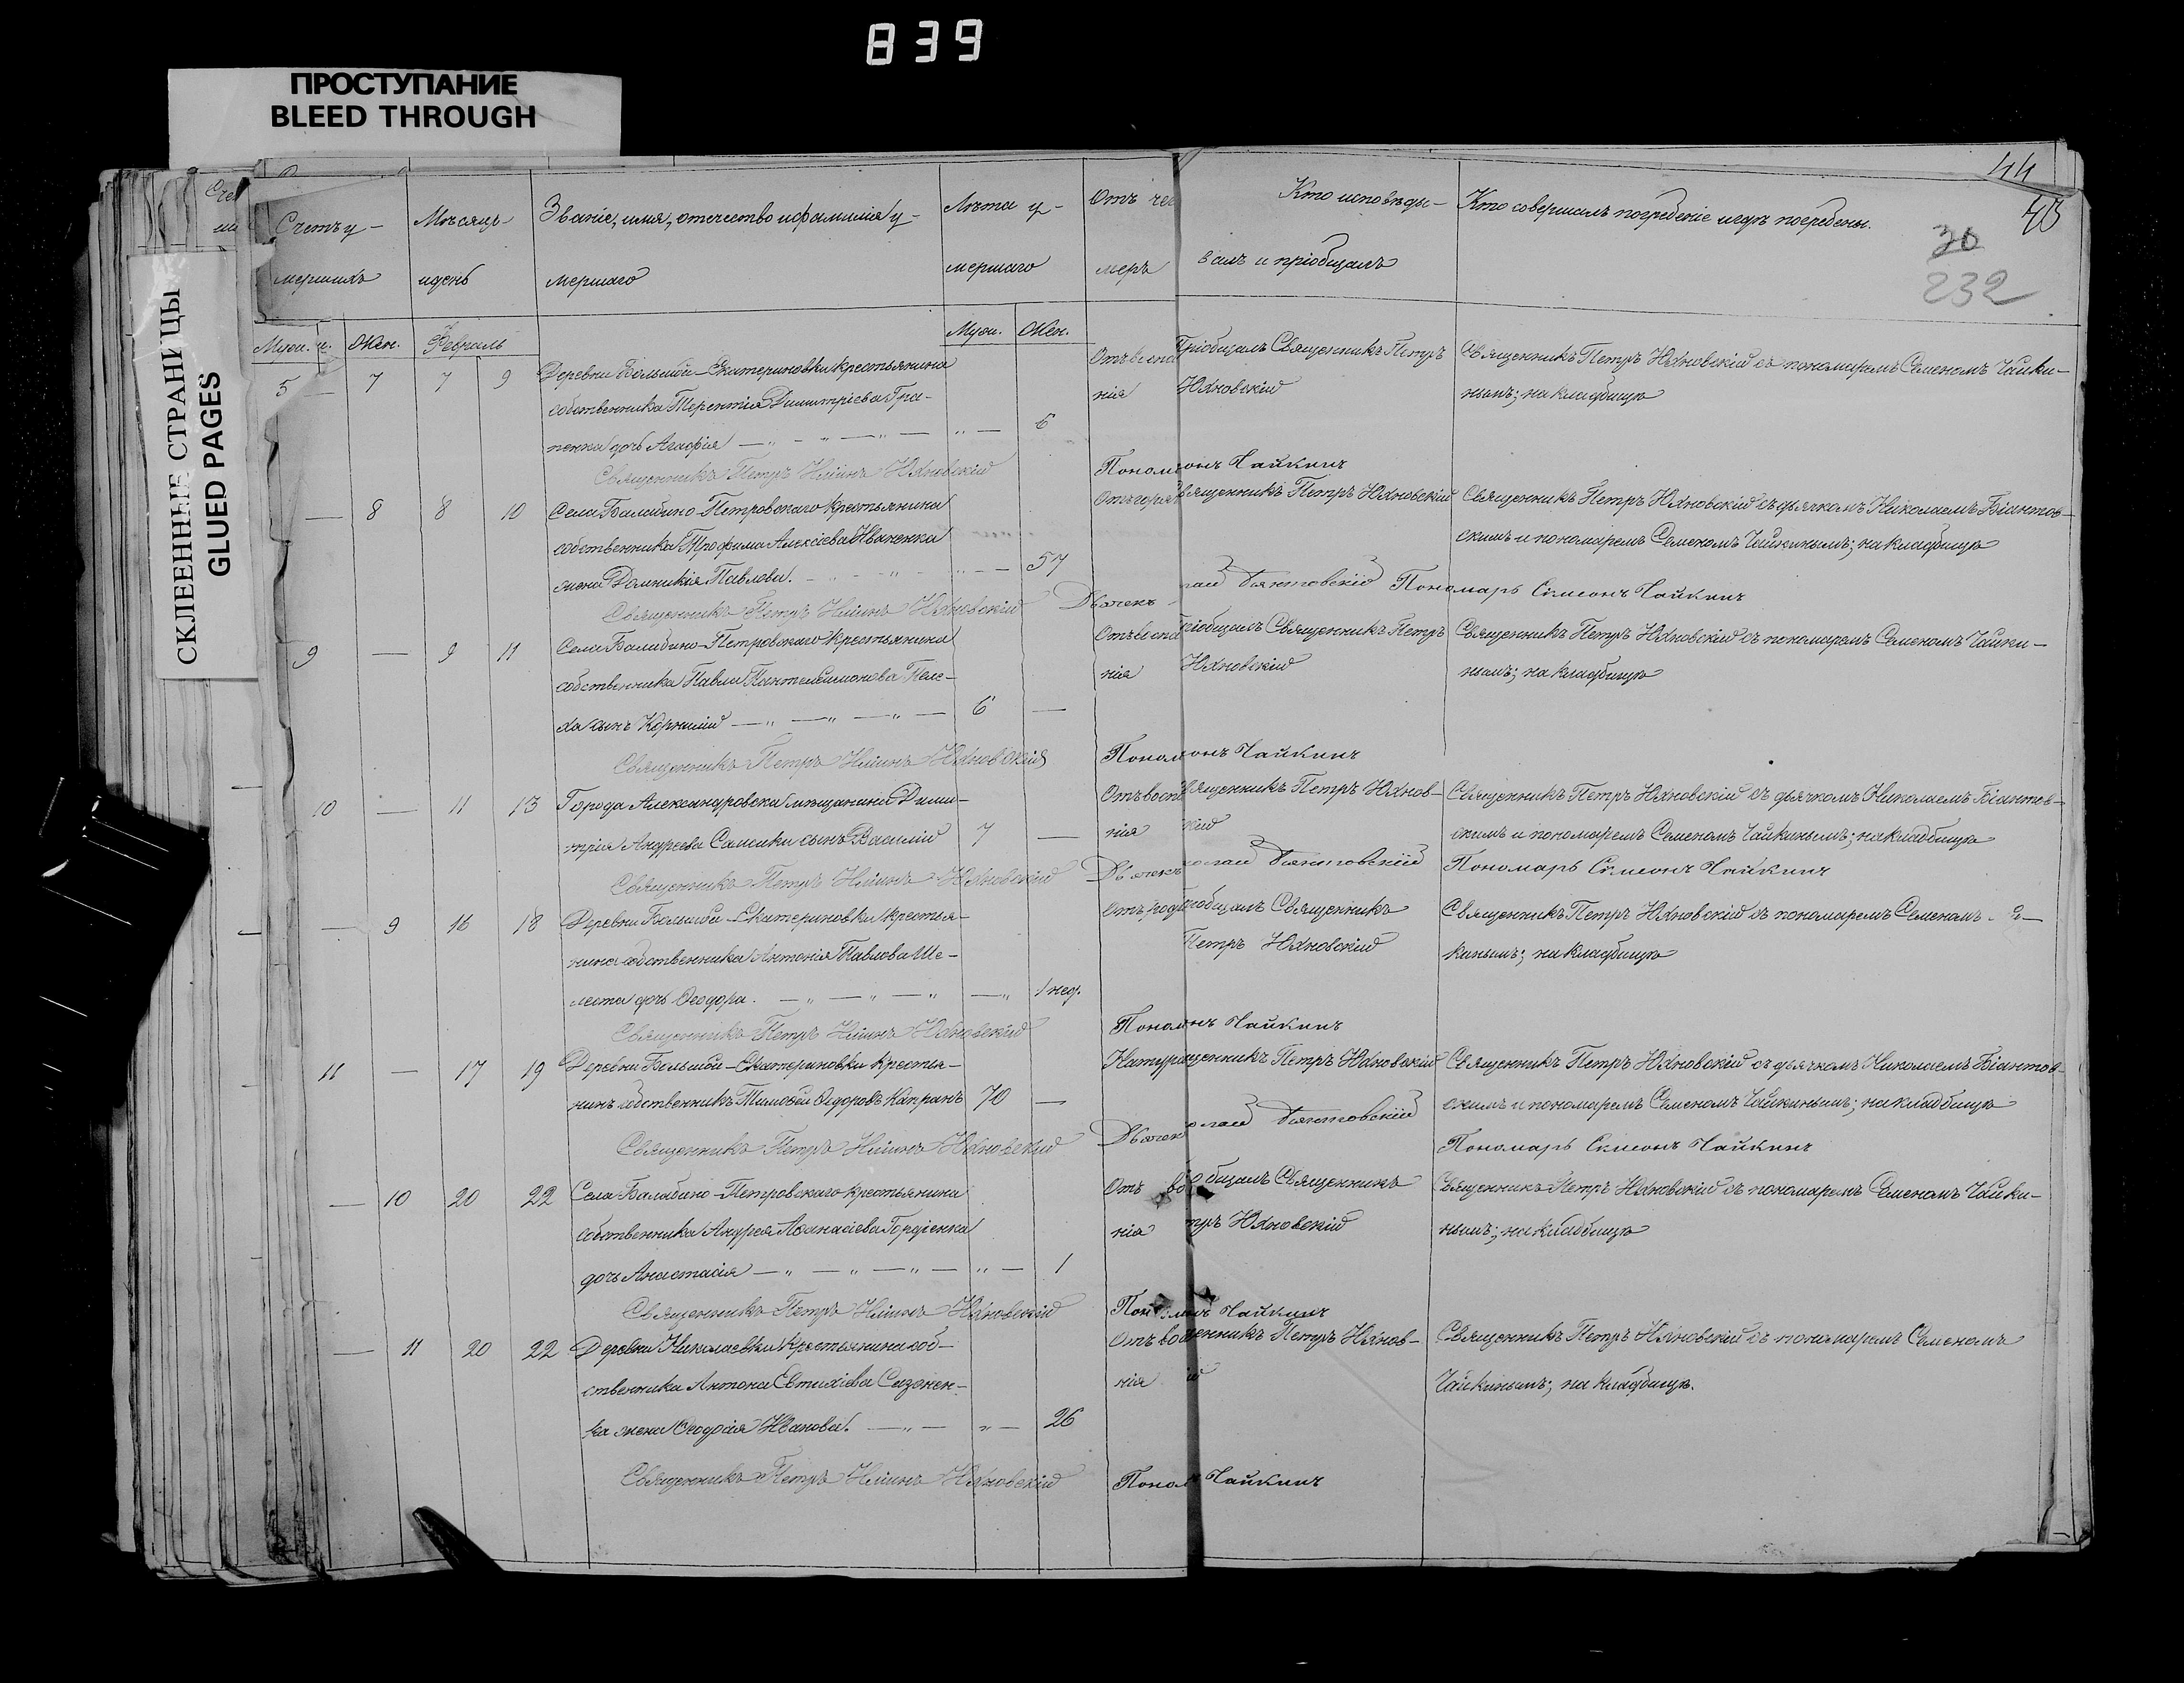 839
ПРОСТУПАНИЕ
BLEED THROUGH
СКЛЕЕННЫЕ СТРАНИЦЫ
GLUED PAGES
44
43
30
232
Счетъ у-
мершихъ
Мѣсяцъ
и день
Званіе, имя, отчество и фамилія у-
мершаго
Лѣта у-
мершаго
Отъ чег
меръ
Кто исповѣды-
валъ и пріобщалъ
Кто совершалъ погребеніе и гдѣ погребены.
Муж. Жен. Февраль Муж. Жен.
5 — 7 7 9 Деревни Большой-Екатериновки крестьянина
собственника Терентія Димитріева
дочь Агафія — 6
Пріобщалъ Священникъ Петръ
нія Юхновскій
Священникъ Петръ Юхновскій съ пономаремъ Семеномъ Чайки-
нымъ; на кладбищѣ
Священникъ Петръ Юхновскій
Чайкинъ
— 8 8 10 Села Балабино-Петровскаго крестьянина
собственника Трофима Алексіева Иваненка
жена Домникія Павлова. — 57
Священникъ Петръ Юхновскій
Священникъ Петръ Юхновскій съ дьячкомъ Николаемъ Біантов-
скимъ и пономаремъ Семеномъ Чайкинымъ; на кладбищѣ
Священникъ Петръ Юхновскій
Дьячек Біянтовскій Пономарь Симеонъ Чайкинъ
9 — 9 11 Села Балабино-Петровскаго крестьянина
собственника Павла
сынъ Корнилій — 6 —
Священникъ Петръ
нія Юхновскій
Священникъ Петръ Юхновскій съ пономаремъ Семеномъ Чайки-
нымъ; на кладбищѣ
Священникъ Петръ Юхновскій
Чайкинъ
10 — 11 13 Города Александровска мѣщанина Дими-
трія Андреева сынъ Василій 7 —
нія
Петръ Юхнов-
Священникъ Петръ Юхновскій съ дьячкомъ Николаемъ Біантов-
скимъ и пономаремъ Семеномъ Чайкинымъ; на кладбищѣ
Священникъ Петръ Юхновскій
Біянтовскій Пономарь Симеонъ Чайкинъ
— 9 16 18 Деревни Большой-Екатериновки крестья-
нина собственника Антонія Павлова Ше-
леста дочь Ѳеодора. — 1 нед.
Священникъ
Петръ Юхновскій
Священникъ Петръ Юхновскій съ пономаремъ Семеномъ
кинымъ; на кладбищѣ
Священникъ Петръ Юхновскій
Чайкинъ
11 — 17 19 Деревни Большой-Екатериновки крестья-
нинъ собственникъ Тимоѳей Ѳедоровъ Капранъ 70 —
Петръ Юхновскій
Священникъ Петръ Юхновскій съ дьячкомъ Николаемъ Біантов-
скимъ и пономаремъ Семеномъ Чайкинымъ; на кладбищѣ
Священникъ Петръ Юхновскій
Біянтовскій
Пономарь Симеонъ Чайкинъ
— 10 20 22 Села Балабино-Петровскаго крестьянина
собственника Андрея Аѳанасіева Гордіенка
дочь Анастасія — 1
Отъ
Священникъ
нія
Юхновскій
Священникъ Петръ Юхновскій съ пономаремъ Семеномъ Чайки-
нымъ; на кладбищѣ
Священникъ Петръ Юхновскій
Чайкинъ
— 11 20 22 Деревни Николаевки крестьянина соб-
ственника Антона Евтихіева Сазонен-
ка жена Ѳеодосія Иванова. — 26
Петръ Юхнов-
нія
Священникъ Петръ Юхновскій съ пономаремъ Семеномъ
Чайкинымъ; на кладбищѣ.
Священникъ Петръ Юхновскій
Чайкинъ